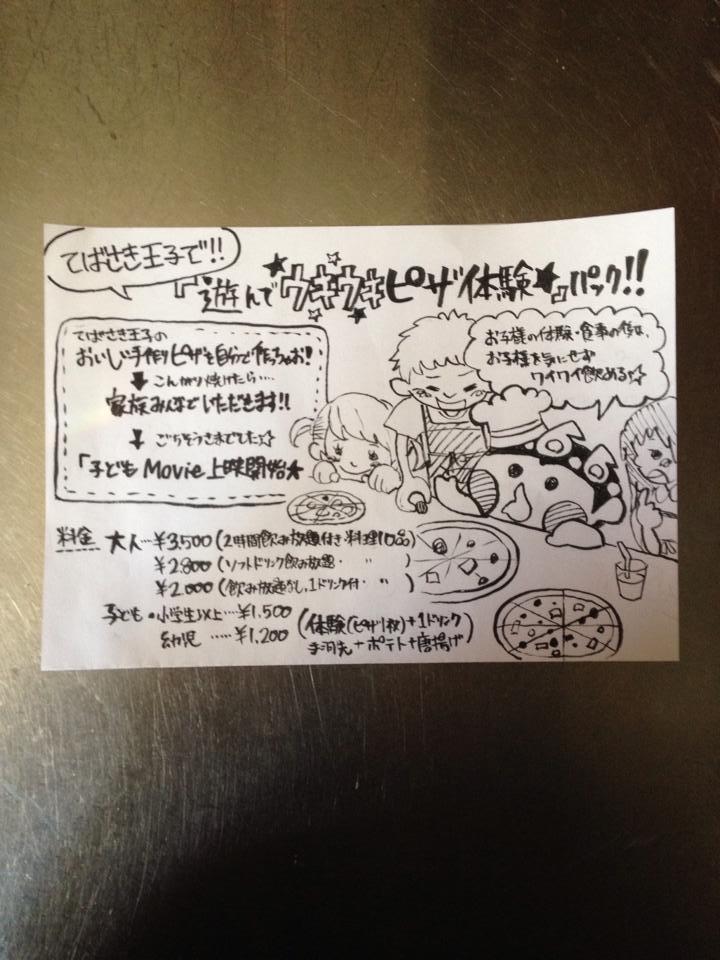 てばさき王子で!!
遊んでウキウキピザ体験★パック!!
てばさき王子の
おいしい手作りピザを自分で作っちゃお!
こんがり焼けたら....
家族みんなでいただきます!!
ごちそうさまでした☆
「子どもMovie上映開始★
お子様の体験・食事の後は、
お子様を気にせず
ワイワイ飲める☆
料金 大人…¥3,500(2時間飲み放題付き・料理10品)
¥2,800(ソフトドリンク飲み放題・〃)
¥2,000(飲み放題なし、1ドリンク付・〃)
子ども・小学生以上….¥1,500
幼児…..¥1,200
(体験(ピザ1枚)+1ドリンク
手羽先+ポテト+唐揚げ)